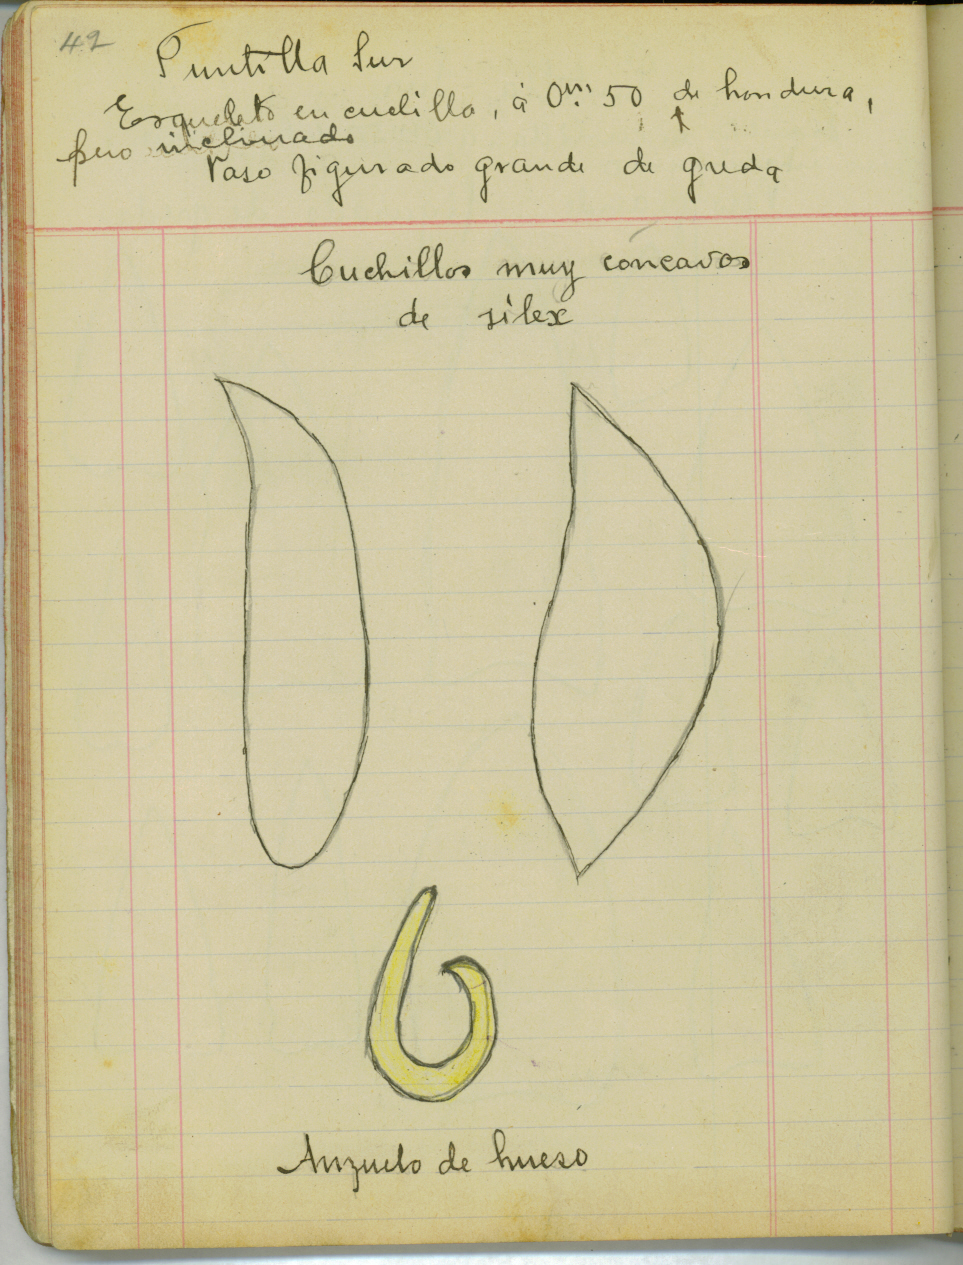 42
Puntilla Sur
Esqueleto en cuclilla, á 0m. 50 de hondura,
pero inclinado
Vaso figurado grande de greda
Cuchillos muy concavos
de silex
Anzuelo de hueso